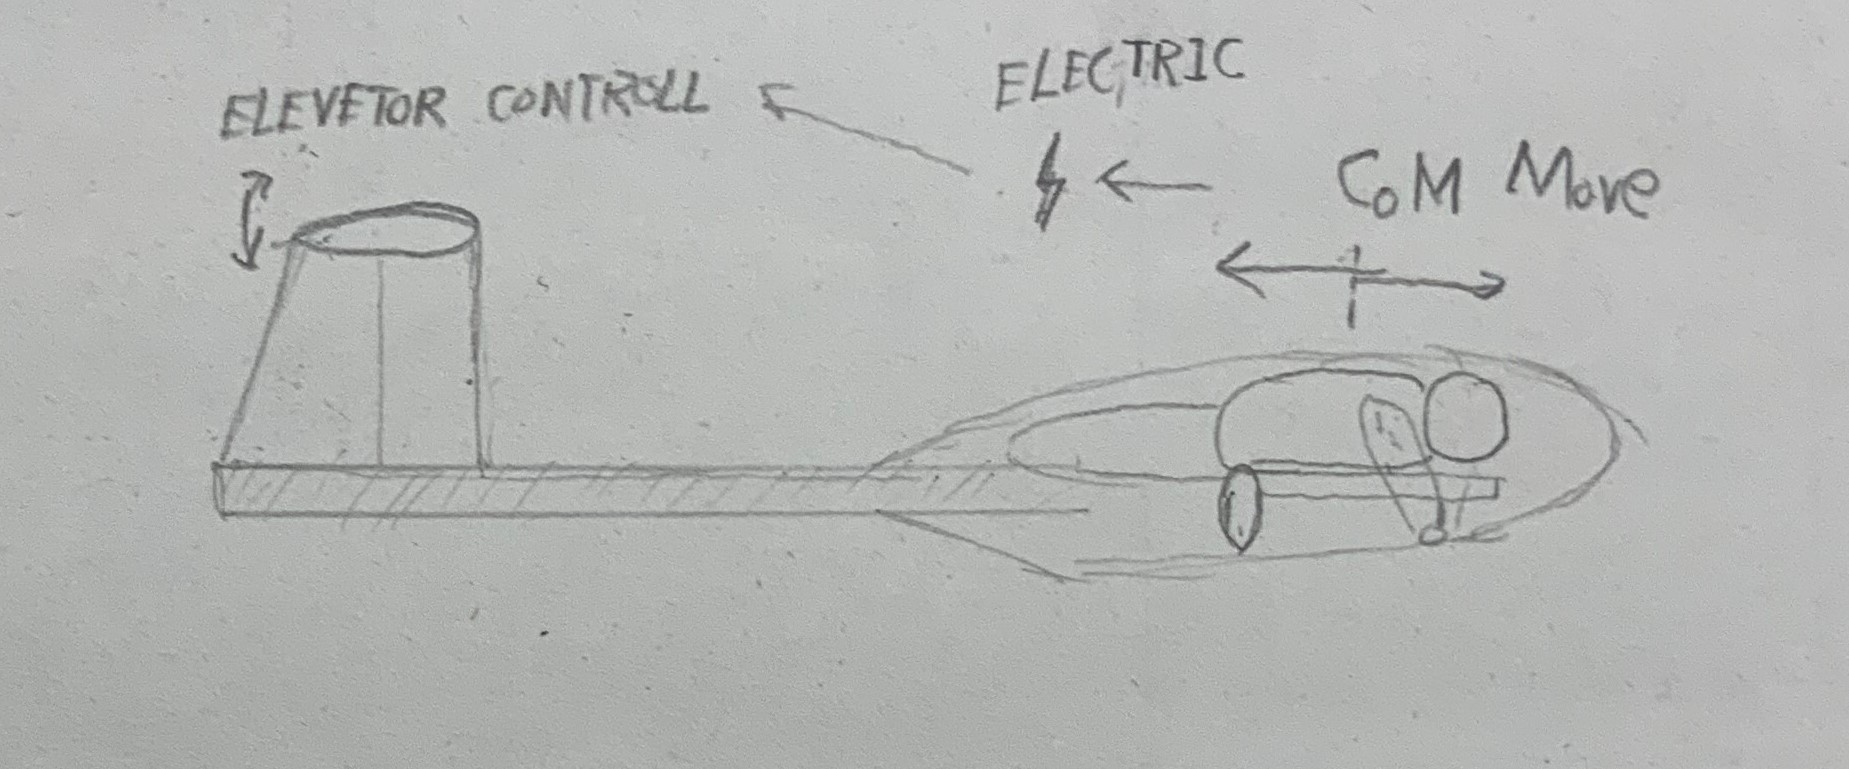 ELEVETOR CONTROLL
ELECTRIC
CoM Move